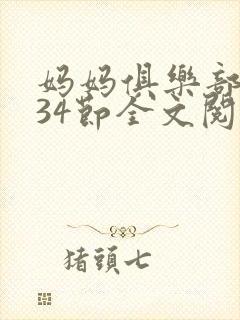 妈妈俱樂部
34節全文閱
猪頭七